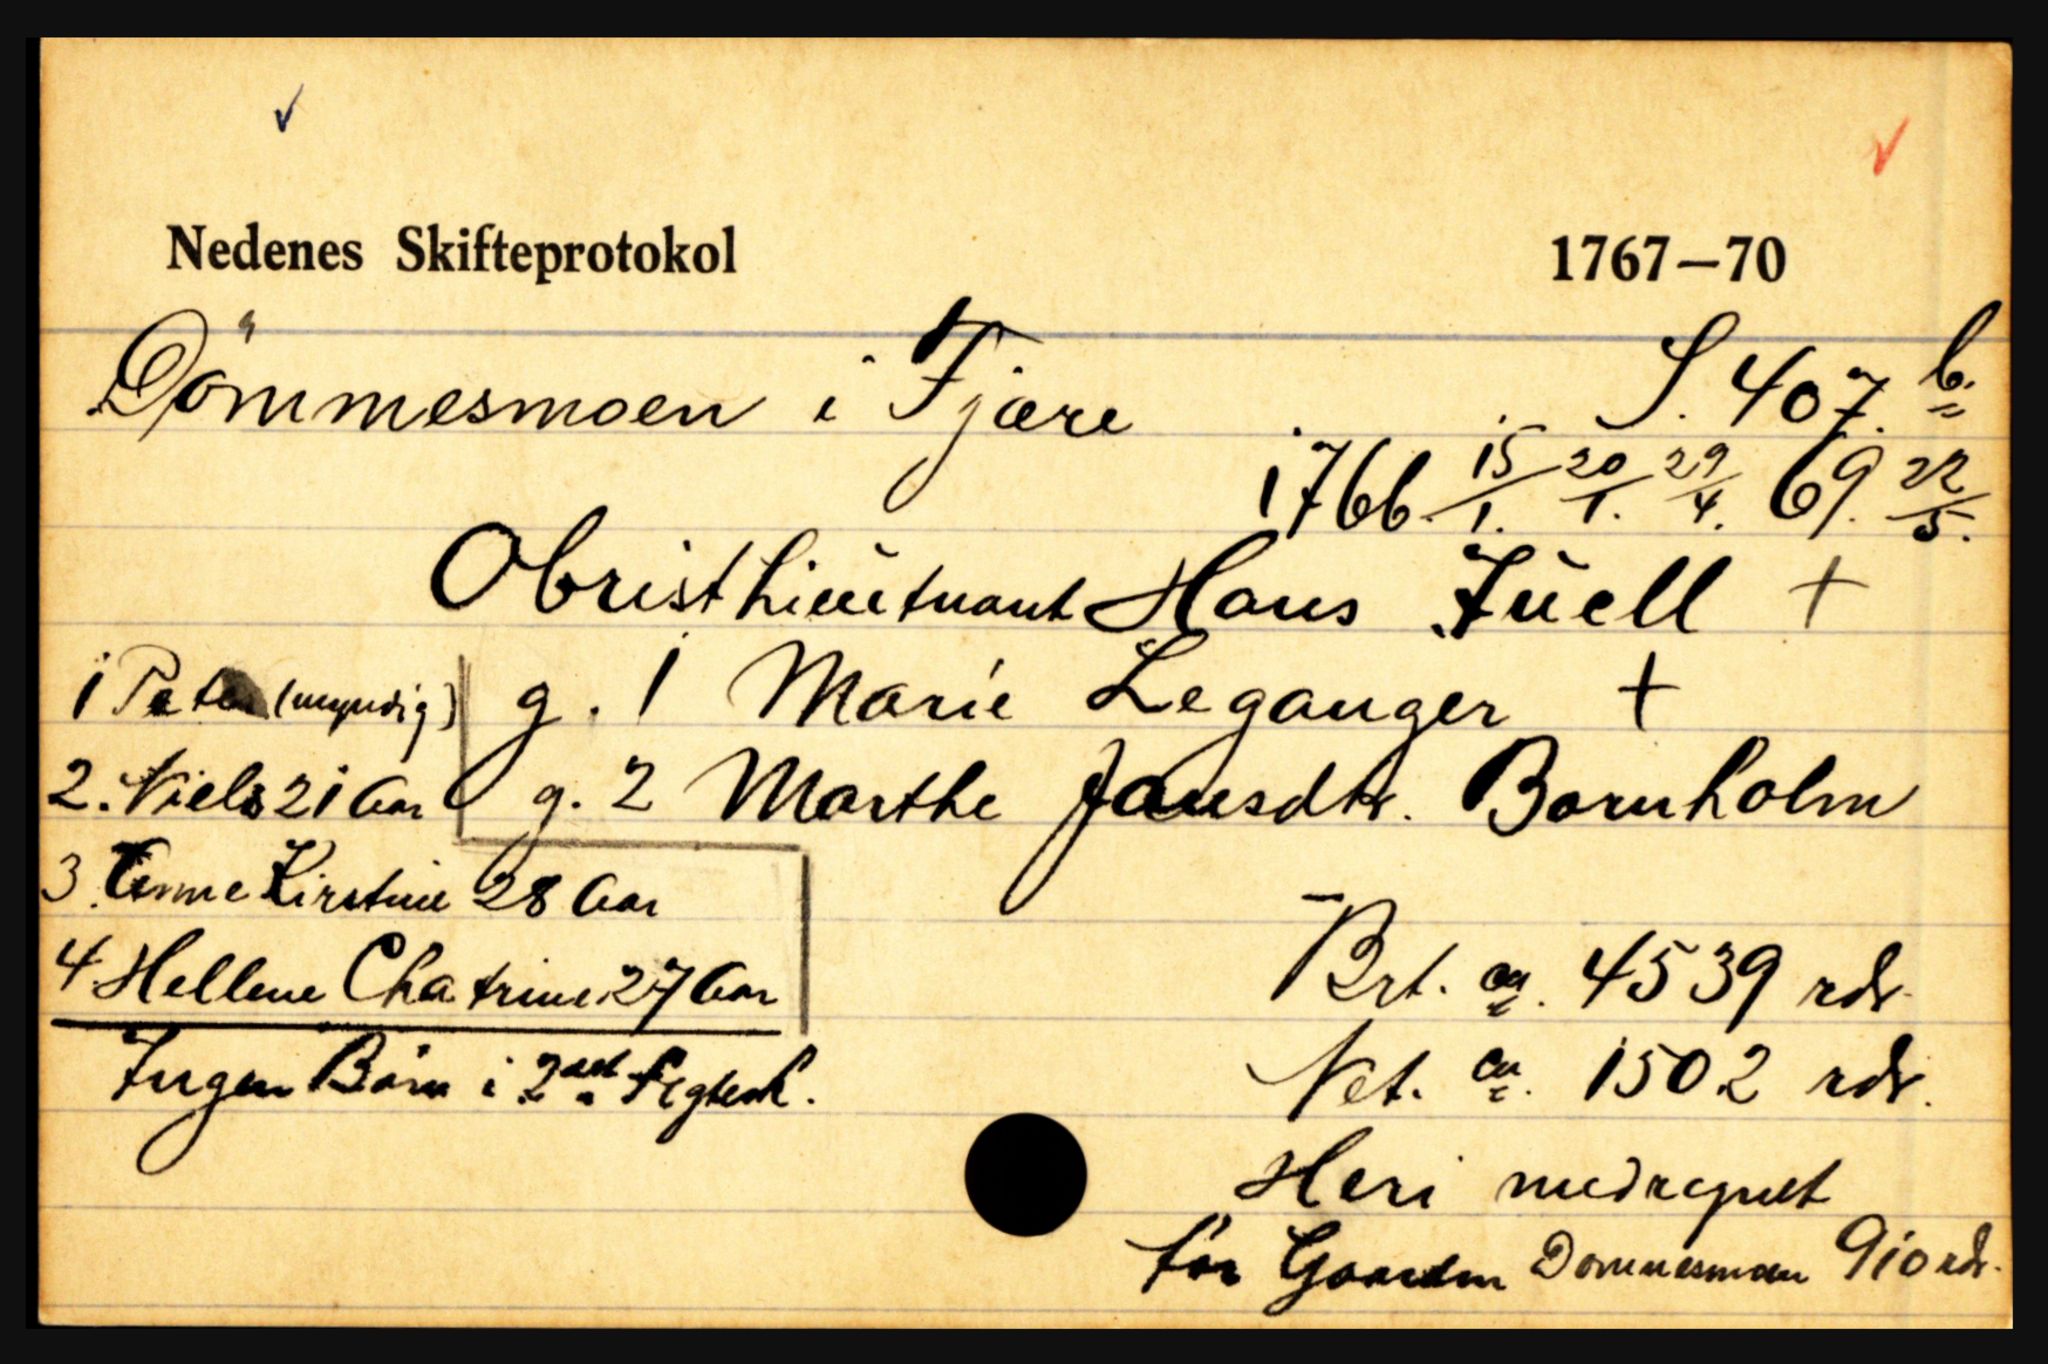 Nedenes Skifteprotokol 1767–70
Dömmesmoen i Fjære S. 407.b.
1766. 15/1. 20/1. 29/4. 69. 22/5.
Obristlieutnant Hans Juell +
1 Peter (myndig) g. 1 Marie Leganger +
2. Niels 21 Aar g. 2 Marthe Jansdtr. Bornholm
3. Anne Kirstine 28 Aar
4. Hellene Chatrine 27 Aar
Brt. ca. 4539 rdr.
Ingen Börn i 2det Ægtesk.
Net. ca. 1502 rdr.
Heri medregnet
for Gaarden Dommesmoen 910 rdr.